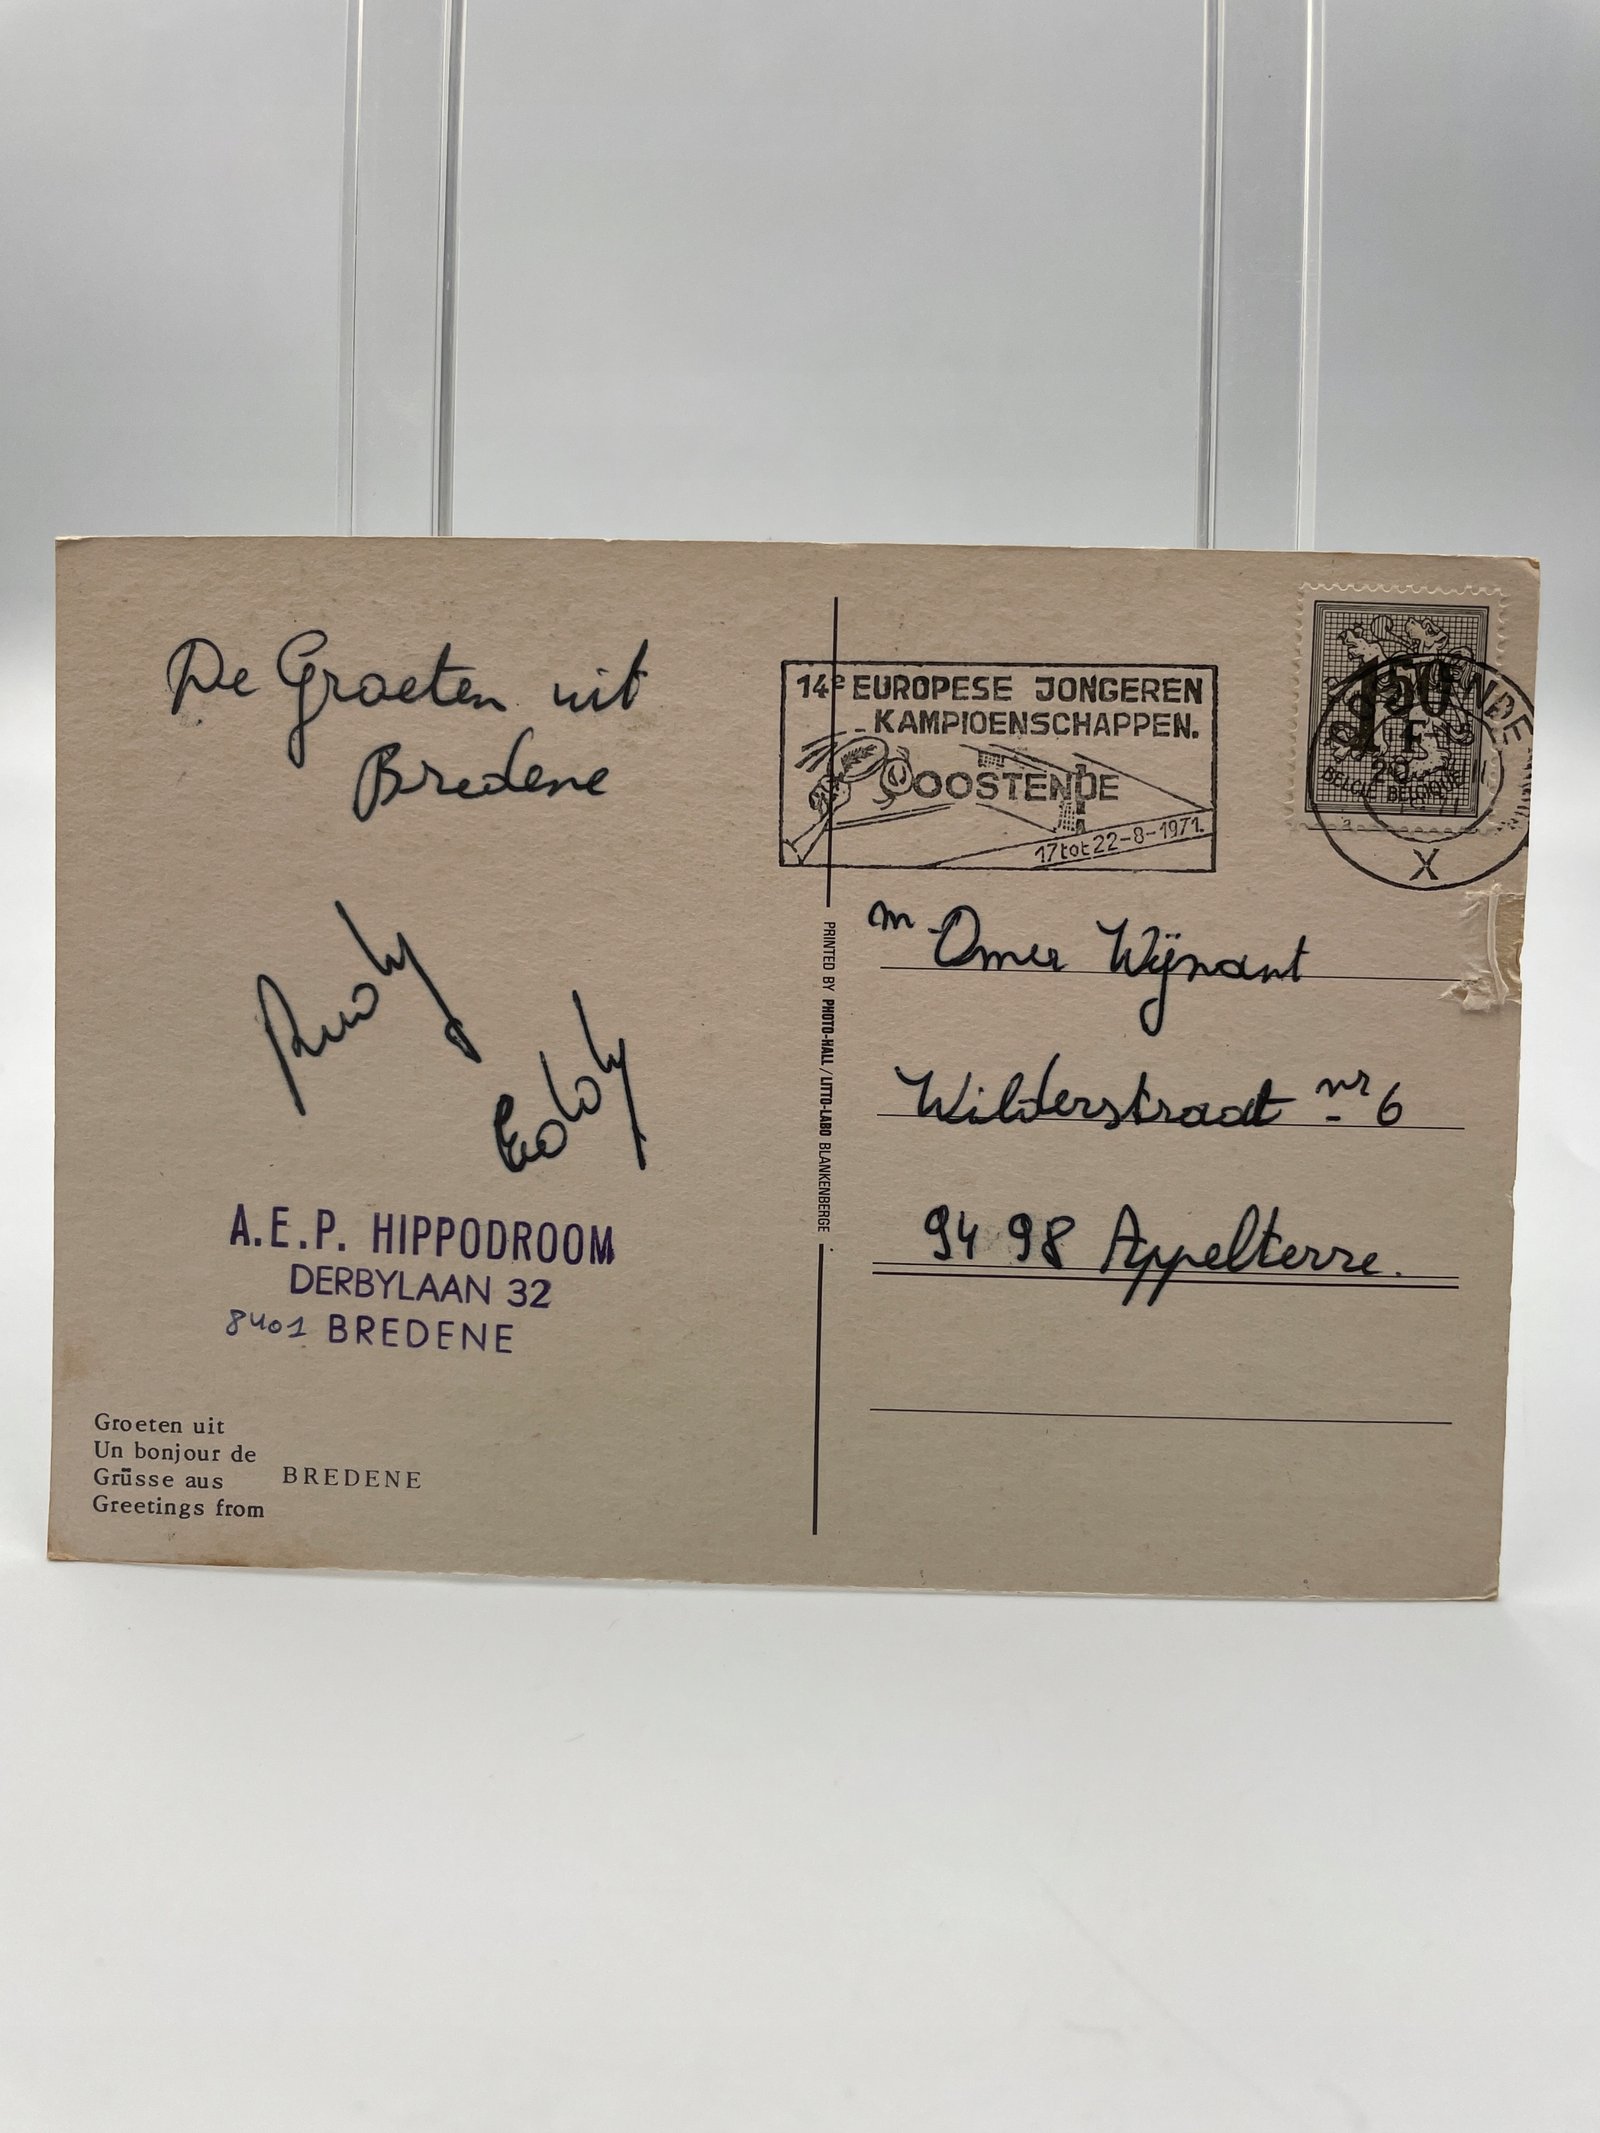 De Groeten uit
Bredene
Rudy
Eddy
A.E.P. HIPPODROOM
DERBYLAAN 32
8401 BREDENE
Groeten uit
Un bonjour de
Grüsse aus
Greetings from
BREDENE
PRINTED BY PHOTO-HALL / LITTO-LABO BLANKENBERGE
14e EUROPESE JONGEREN
KAMPIOENSCHAPPEN.
OOSTENDE
17 tot 22-8-1971.
1F50
BELGIE BELGIQUE
X
Mr Omer Wijnant
Wilderstraat nr 6
9498 Appelterre.